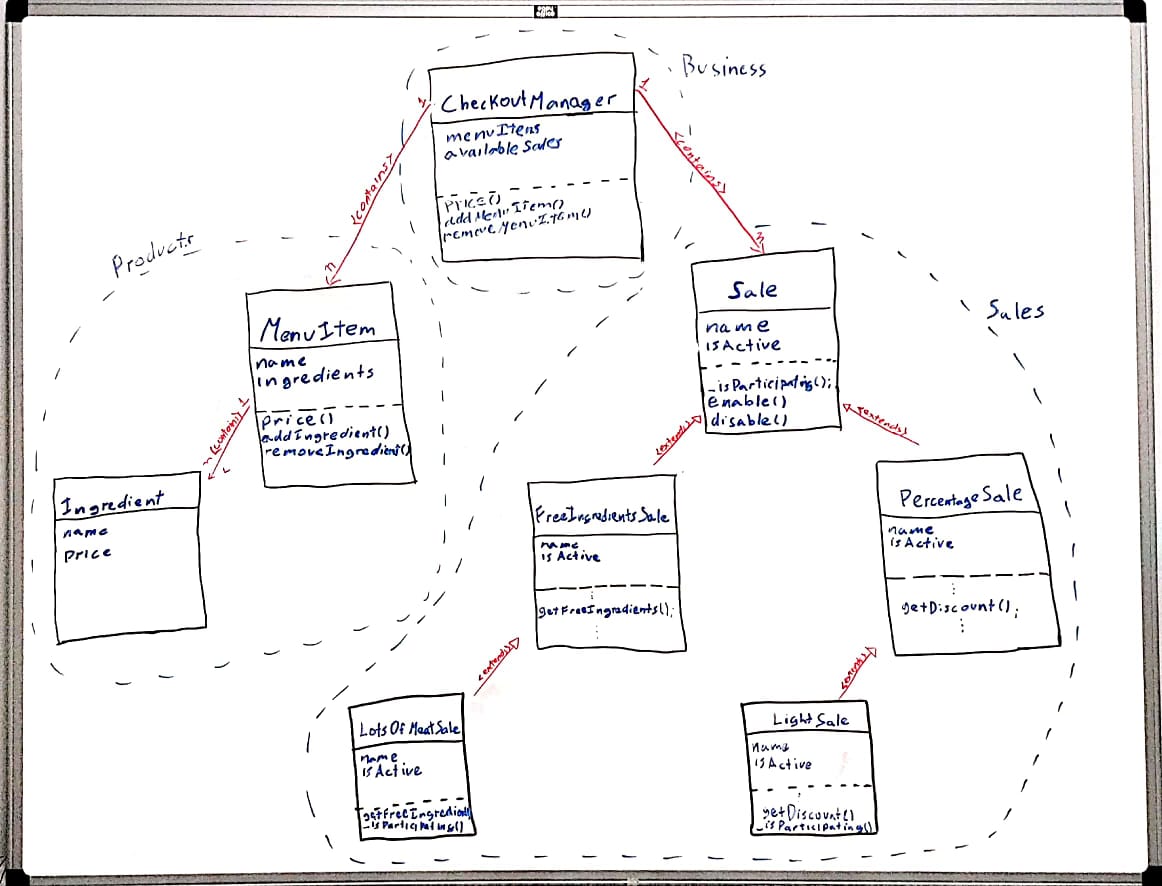 Business
CheckoutManager
menuItems
availableSales
price()
addMenuItem()
removeMenuItem()
1
<contains>
n
1
<contains>
3
Products
MenuItem
name
ingredients
price()
addIngredient()
removeIngredient()
1
<contain>
n
Ingredient
name
price
Sales
Sale
name
isActive
_isParticipating();
enable()
disable()
<extends>
<extends>
FreeIngredientsSale
name
isActive
getFreeIngredients();
PercentageSale
name
isActive
getDiscount();
<extends>
<extends>
LotsOfMeatSale
name
isActive
getFreeIngredient()
_isParticipating()
LightSale
name
isActive
getDiscount()
_isParticipating()